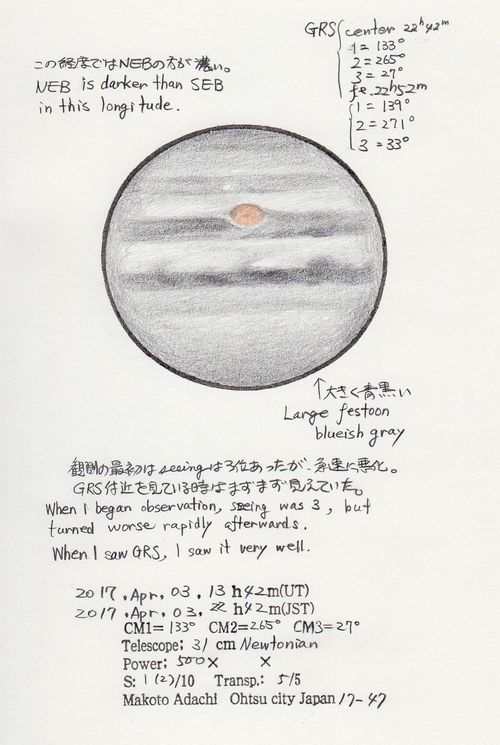 この経度ではNEBの方が濃い。
NEB is darker than SEB
in this longitude.
GRS center 22h42m
1=133°
2=265°
3=27°
f.e. 22h52m
1=139°
2=271°
3=33°
↑大きく青黒い
Large festoon
blueish gray
観測の最初はseeingは3位あったが、急速に悪化。
GRS付近を見ている時はまずまず見えていた。
When I began observation, seeing was 3, but
turned worse rapidly afterwards.
When I saw GRS, I saw it very well.
2017.Apr.03.13h42m(UT)
2017.Apr.03.22h42m(JST)
CM1=133° CM2=265° CM3=27°
Telescope: 31 cm Newtonian
Power: 500× ×
S: 1(2)/10 Transp.: 5/5
Makoto Adachi Ohtsu city Japan 17-47